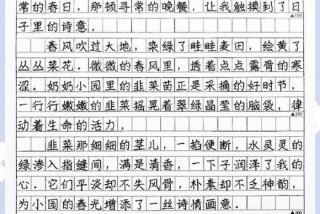 常的春日，那顿寻常的晚餐，让我触摸到了日
▲100
子里的诗意。
春风吹过大地，染绿了畦畦麦田，绘黄了
丛丛菜花。微微的春风里，透着点点露骨的寒
涩。奶奶小园里的韭菜苗正是采摘的好时节，
一行行嫩嫩的韭菜摇晃着翠绿晶莹的脑袋，律
▲200
动着生命的活力。
韭菜那细细的茎儿，一掐便断，水灵灵的
绿渗入指缝间，满是清香，一下子润泽了我的
心。它们平淡却不失风骨，朴素却不乏神韵，
为小园的春光增添了一丝诗情画意。